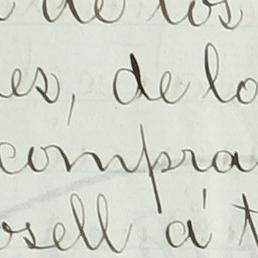 de los
es, de lo
compra
osell á t